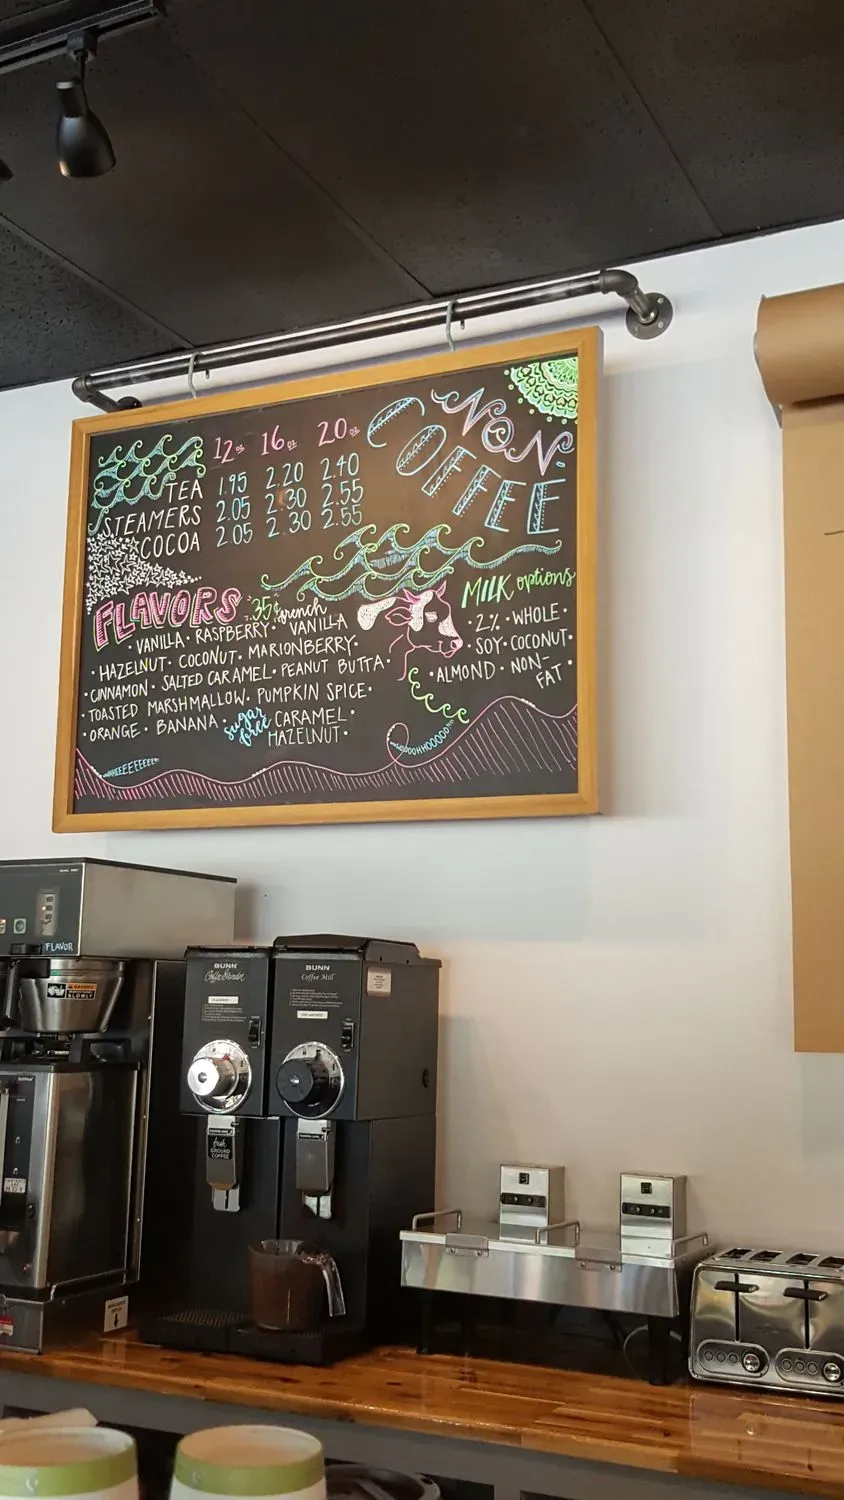 NON-
COFFEE
12 oz 16 oz 20 oz
TEA 1.95 2.20 2.40
STEAMERS 2.05 2.30 2.55
COCOA 2.05 2.30 2.55
FLAVORS 35¢
VANILLA · RASPBERRY · french VANILLA
· HAZELNUT · COCONUT · MARIONBERRY ·
· CINNAMON · SALTED CARAMEL · PEANUT BUTTA ·
· TOASTED MARSHMALLOW · PUMPKIN SPICE ·
· ORANGE · BANANA · sugar free CARAMEL ·
HAZELNUT ·
MILK options
· 2% · WHOLE ·
· SOY · COCONUT ·
· ALMOND · NON-
FAT ·
FLAVOR
WARNING
SLOWLY
BUNN
BUNN
Coffee Mill
fresh
GROUND
COFFEE